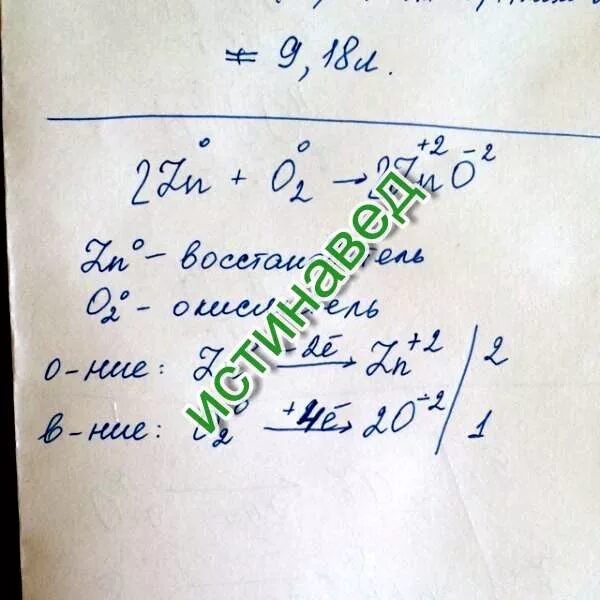 = 9,18л.
2Zn⁰ + O₂⁰ → 2Zn⁺²O⁻²
Zn⁰ – восстановитель
O₂⁰ – окислитель
о-ние: Zn⁰ –2ē→ Zn⁺² / 2
в-ние: O₂⁰ +4ē→ 2O⁻² / 1
истинавед